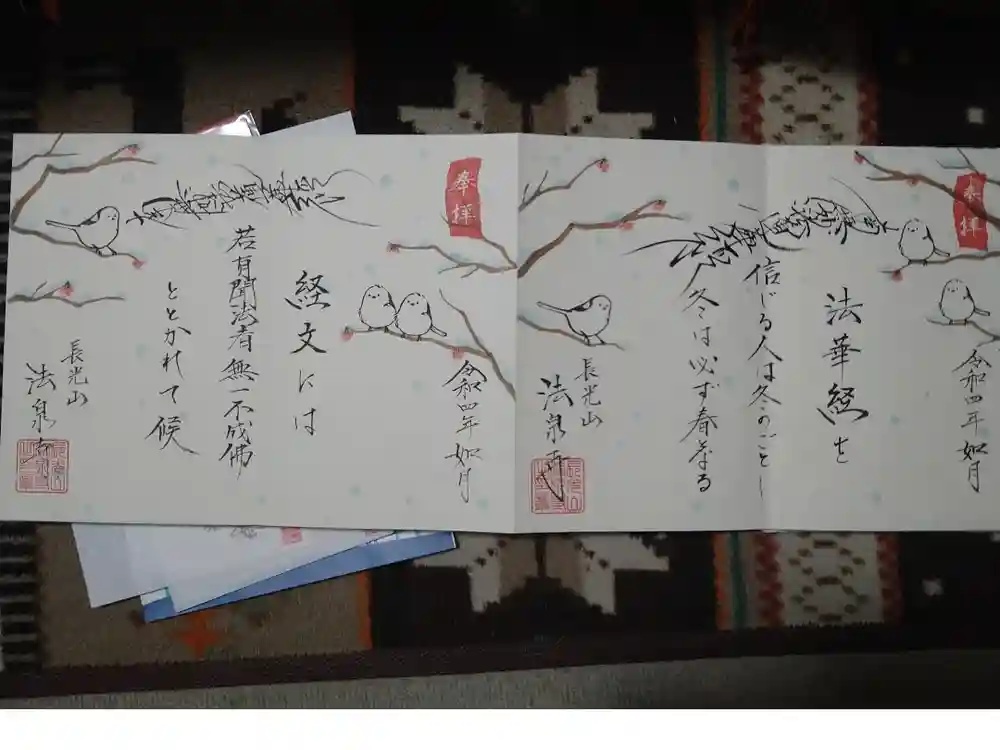 奉拝
令和四年 如月
法華経を
信じる人は冬のごとし
冬は必ず春となる
南無妙法蓮華経
長光山
法泉寺
奉拝
令和四年 如月
経文には
若有聞法者無一不成佛
ととかれて候
南無妙法蓮華経
長光山
法泉寺